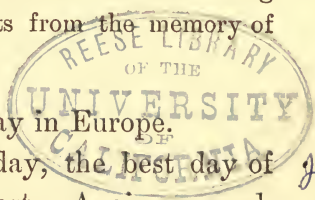 ts from the memory of
REESE LIBRARY
OF THE
UNIVERSITY
OF
CALIFORNIA
ay in Europe.
day, the best day of